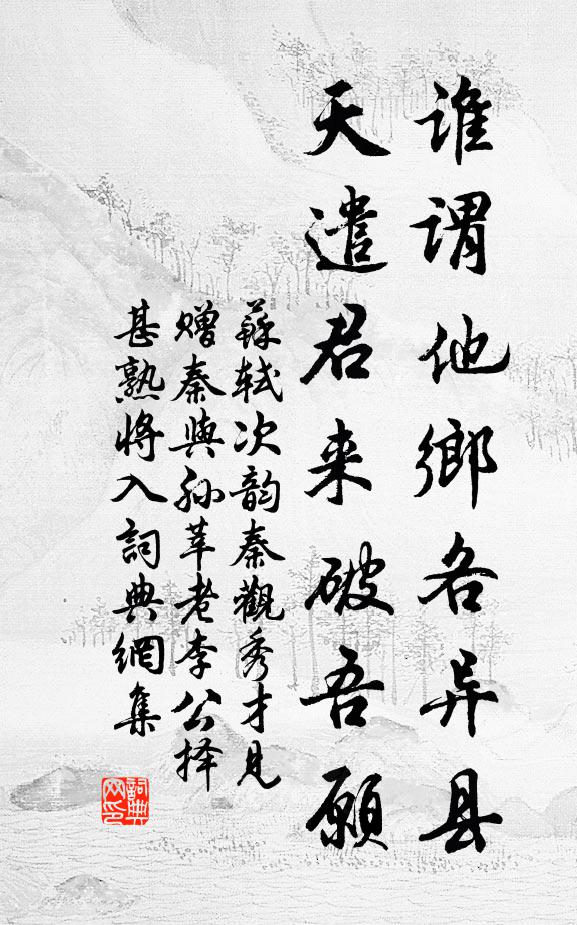 谁谓他鄉各异县
天遣君来破吾願
蘇軾次韵秦觀秀才見
赠秦與孙莘老李公择
甚熟将入詞典網集
詞典网印